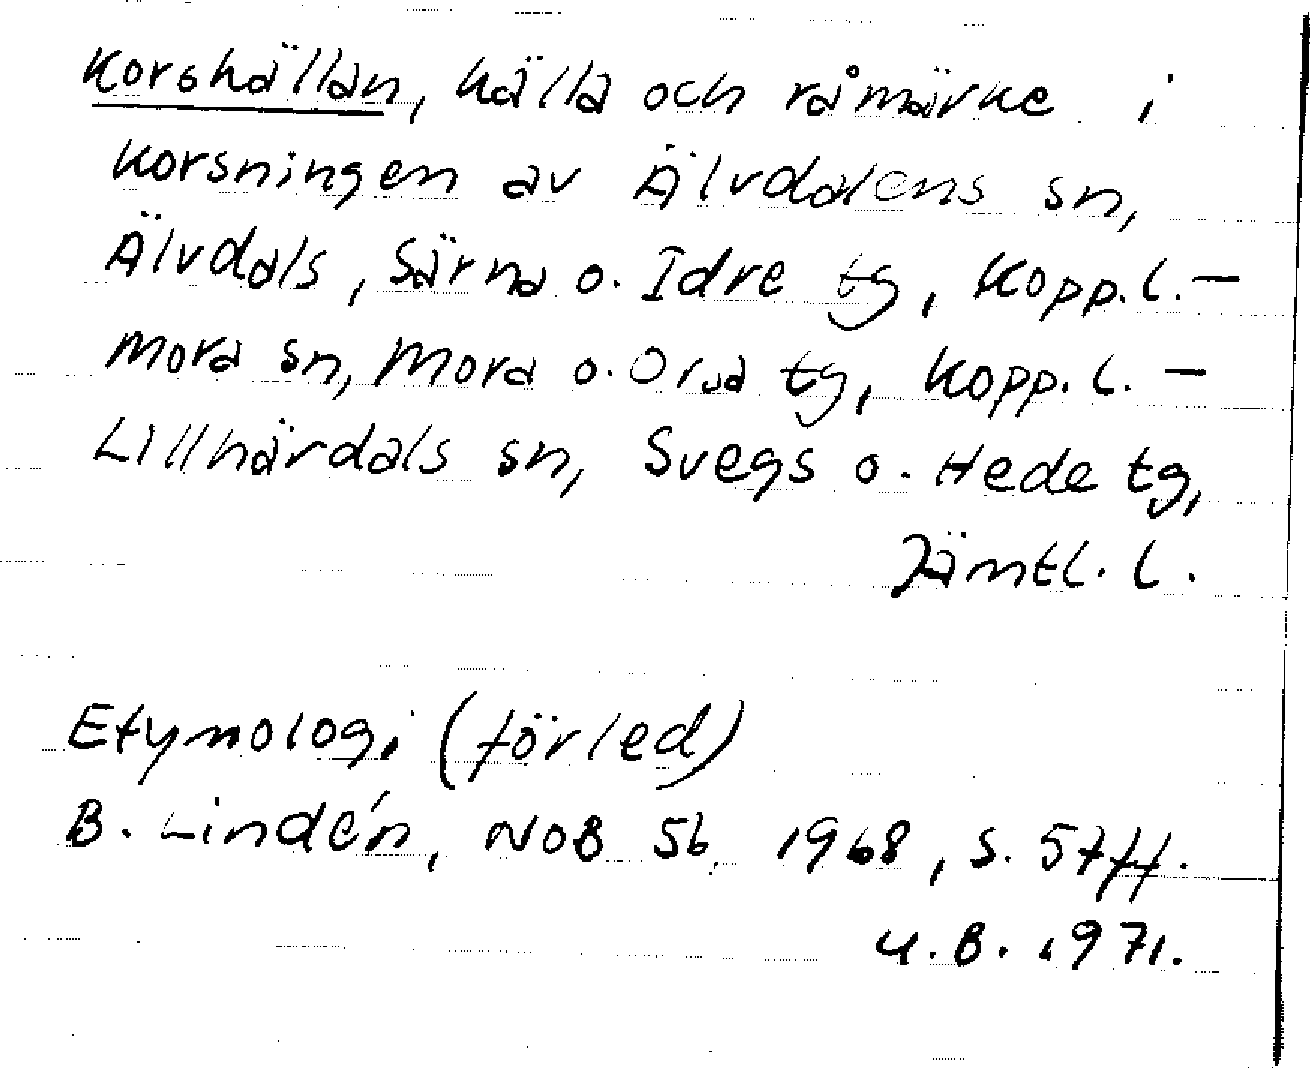 Korskällan, källa och råmärke i
korsningen av Älvdalens sn,
Älvdals, Särna o. Idre tg, Kopp. l. –
Mora sn, Mora o. Orsa tg, Kopp. l. –
Lillhärdals sn, Svegs o. Hede tg,
Jämtl. l.
Etymologi (förled)
B. Lindén, NoB 56, 1968, s. 57ff.
U.B. 1971.